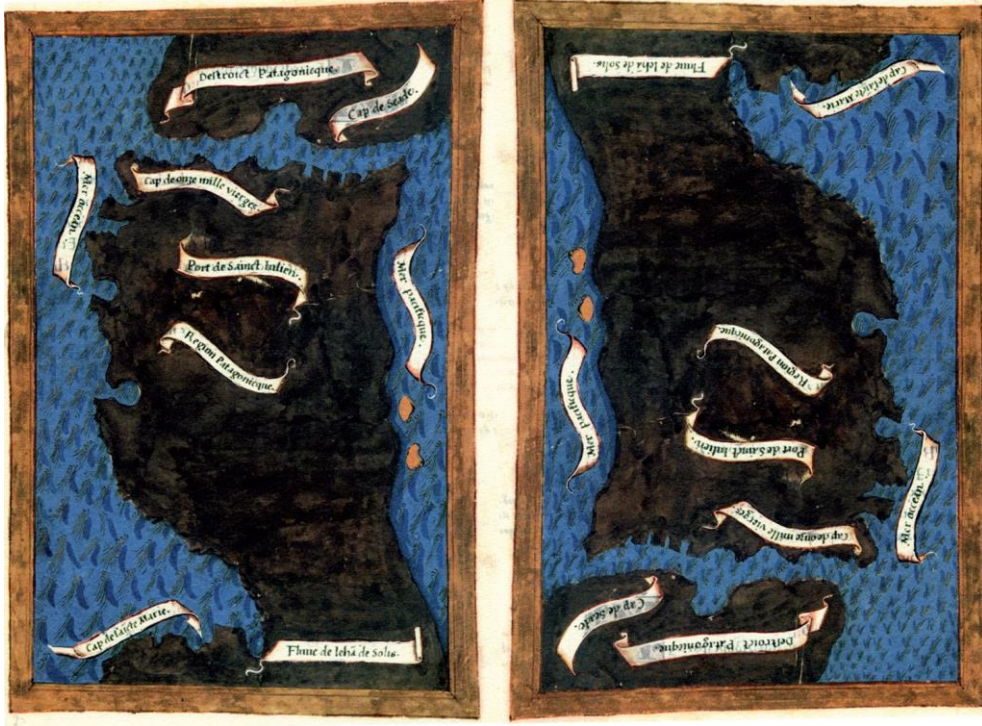 Destroict Patagonicque.
Cap de Sexte.
Cap de onze mille vierges.
Mer occeãn.
Port de Sainct Iulien.
Mer pacificque.
Region Patagonicque.
Cap de saicte Marie.
Fluue de Iehã de Solis.
Fluue de Iehã de Solis.
Cap de saicte Marie.
Region Patagonicque.
Mer pacificque.
Port de Sainct Iulien.
Mer occeãn.
Cap de onze mille vierges.
Cap de Sexte.
Destroict Patagonicque.